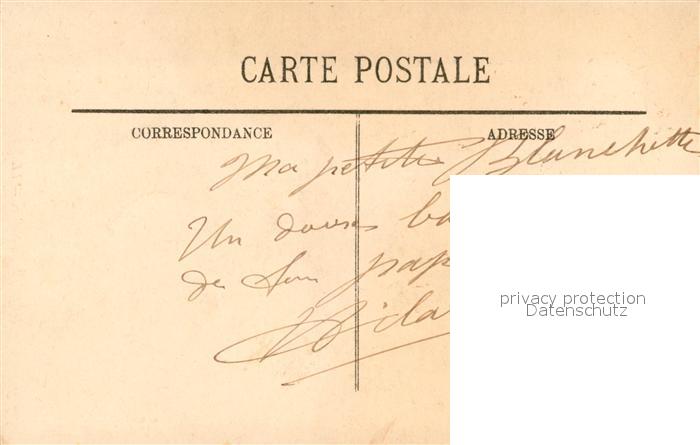 CARTE POSTALE
CORRESPONDANCE ADRESSE
Ma petite Blanchette
Un doux
de son pap
privacy protection
Datenschutz